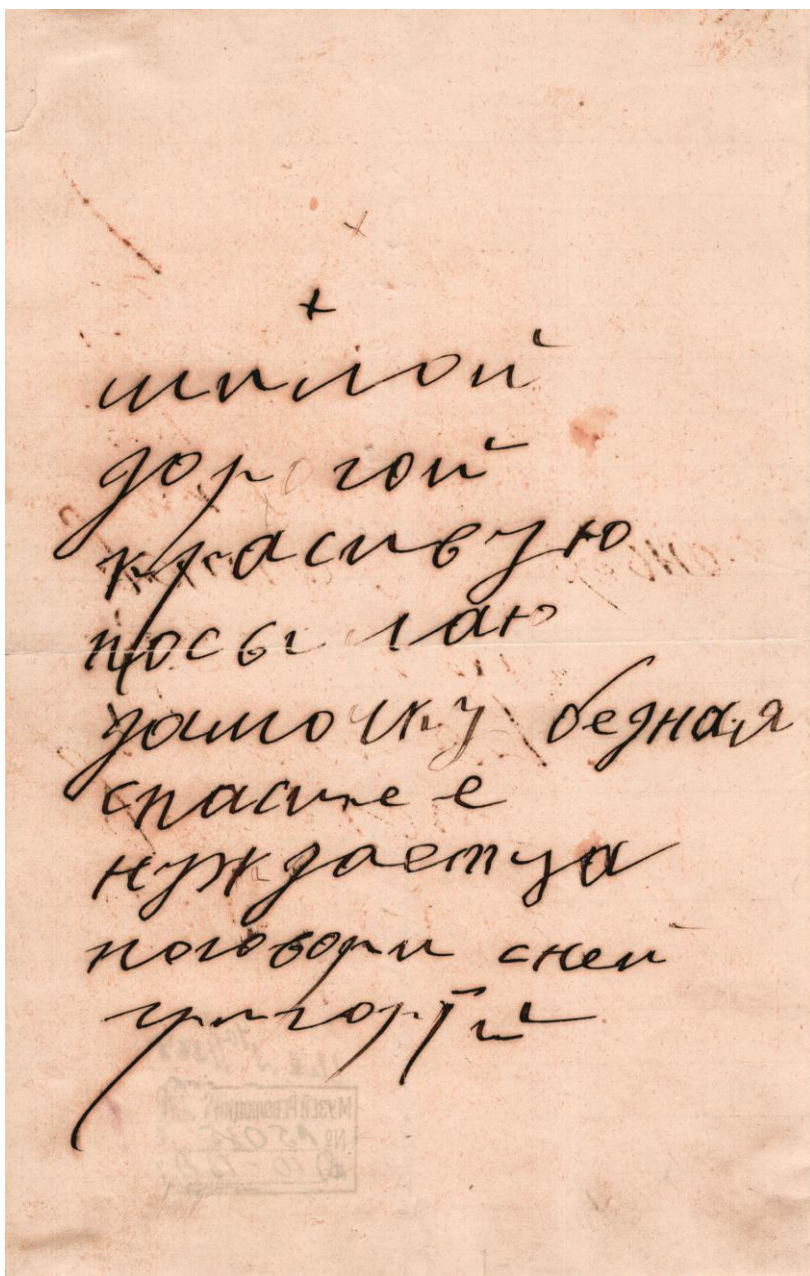 +
+
милой
дорогой
красивую
посылаю
дамочку бедная
спаси ее
нуждаетца
поговори сней
григорїй
МУЗЕЙ РЕВОЛЮЦИИ